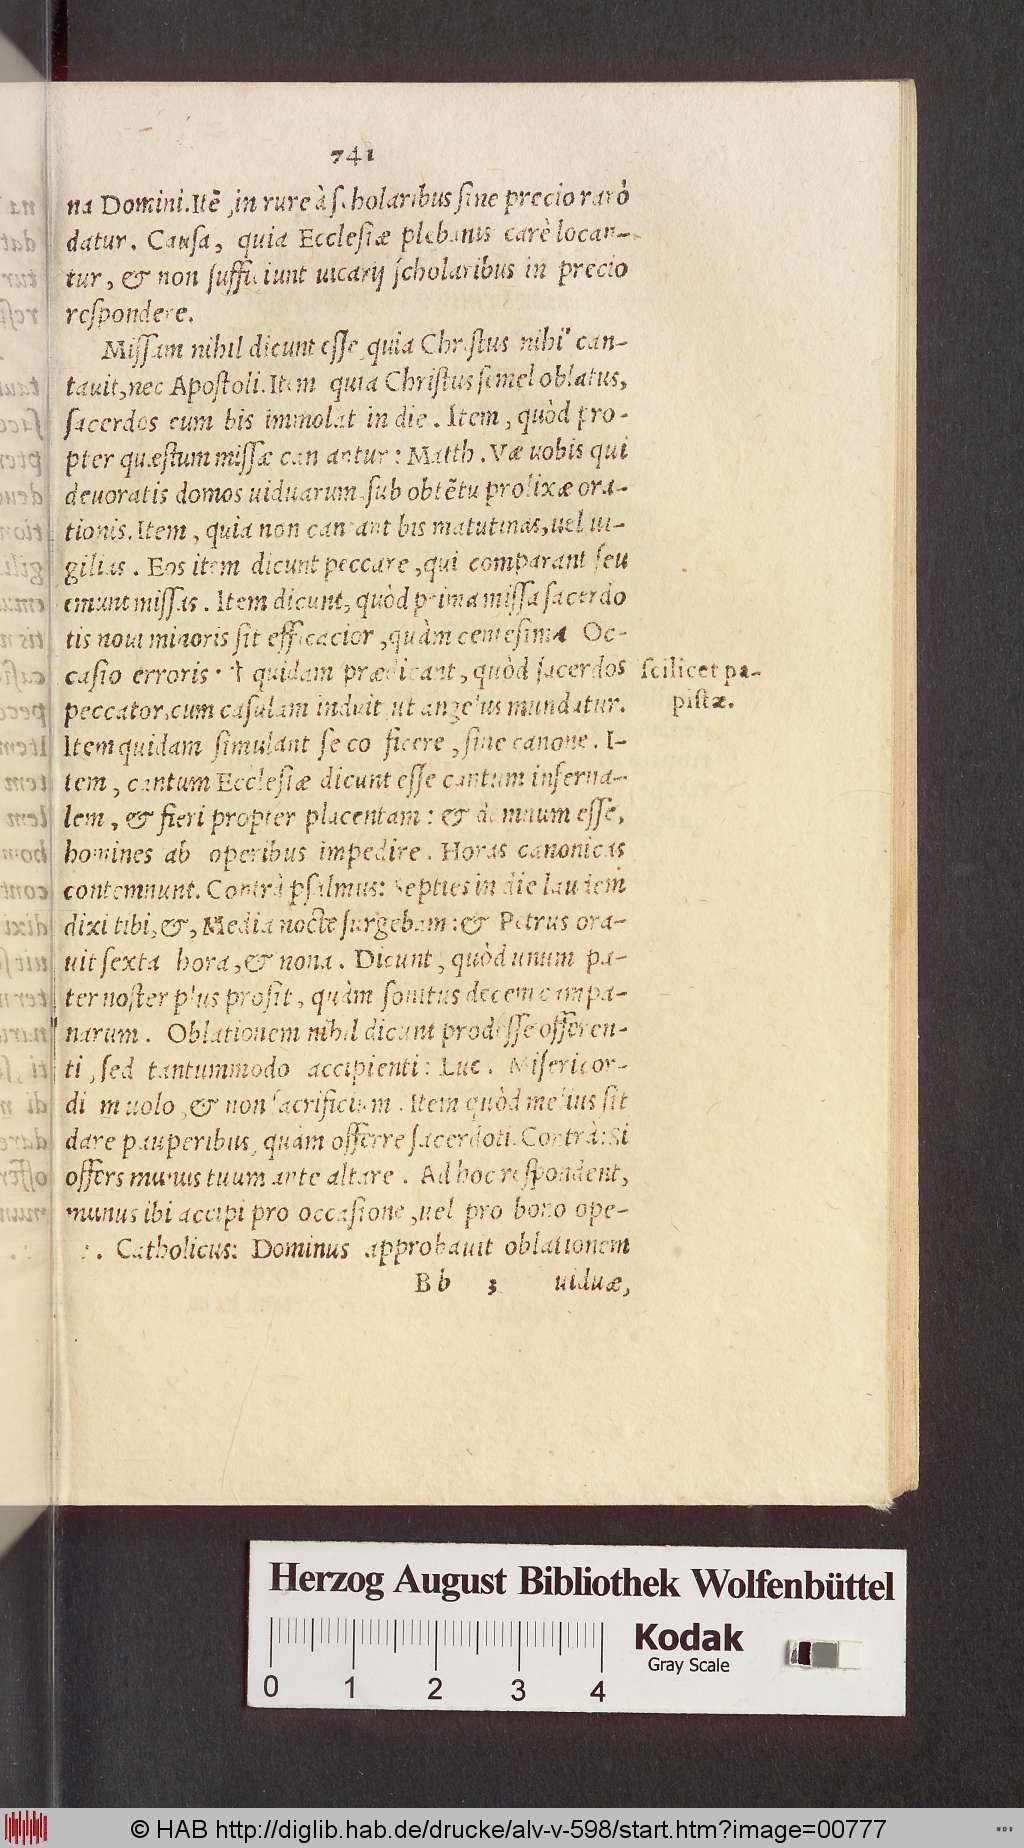 741
na Domini. Itẽ, in rure à ſcholaribus ſine precio rarò
datur. Cauſa, quia Eccleſiæ plebanis carè locan-
tur, & non ſufficiunt uicarij ſcholaribus in precio
reſpondere.
Miſſam nihil dicunt eſſe, quia Chriſtus nihil can-
tauit, nec Apoſtoli. Item quia Chriſtus ſemel oblatus,
ſacerdos eum bis immolat in die. Item, quòd pro-
pter quæſtum miſſæ cantantur: Matth. Væ uobis qui
deuoratis domos uiduarum, ſub obtẽtu prolixæ ora-
tionis. Item, quia non cantant bis matutinas, uel ui-
gilias. Eos item dicunt peccare, qui comparant ſeu
emunt miſſas. Item dicunt, quòd prima miſſa ſacerdo
tis noui minoris ſit efficacior, quàm centeſima Oc-
caſio erroris. quidam prædicant, quòd ſacerdos
ſcilicet pa-
piſtæ.
peccator, cum caſulam induit, ut angelus mundatur.
Item quidam ſimulant ſe conficere, ſine canone. I-
tem, cantum Eccleſiæ dicunt eſſe cantum inferna-
lem, & fieri propter placentam: & damnum eſſe,
homines ab operibus impedire. Horas canonicas
contemnunt. Contrà pſalmus: Septies in die laudem
dixi tibi, &, Media nocte ſurgebam: & Petrus ora-
uit ſexta hora, & nona. Dicunt, quòd unum pa-
ter noſter plus proſit, quàm ſonitus decem campa-
narum. Oblationem nihil dicunt prodeſſe offeren-
ti, ſed tantummodo accipienti: Luc. Miſericor-
diam uolo, & non ſacrificium. Item quòd melius ſit
dare pauperibus, quàm offerre ſacerdoti. Contrà: Si
offers munus tuum ante altare. Ad hoc reſpondent,
munus ibi accipi pro occaſione, uel pro bono ope-
Catholicus: Dominus approbauit oblationem
Bb 3 uiduæ,
Herzog August Bibliothek Wolfenbüttel
Kodak
Gray Scale
0 1 2 3 4
© HAB http://diglib.hab.de/drucke/alv-v-598/start.htm?image=00777